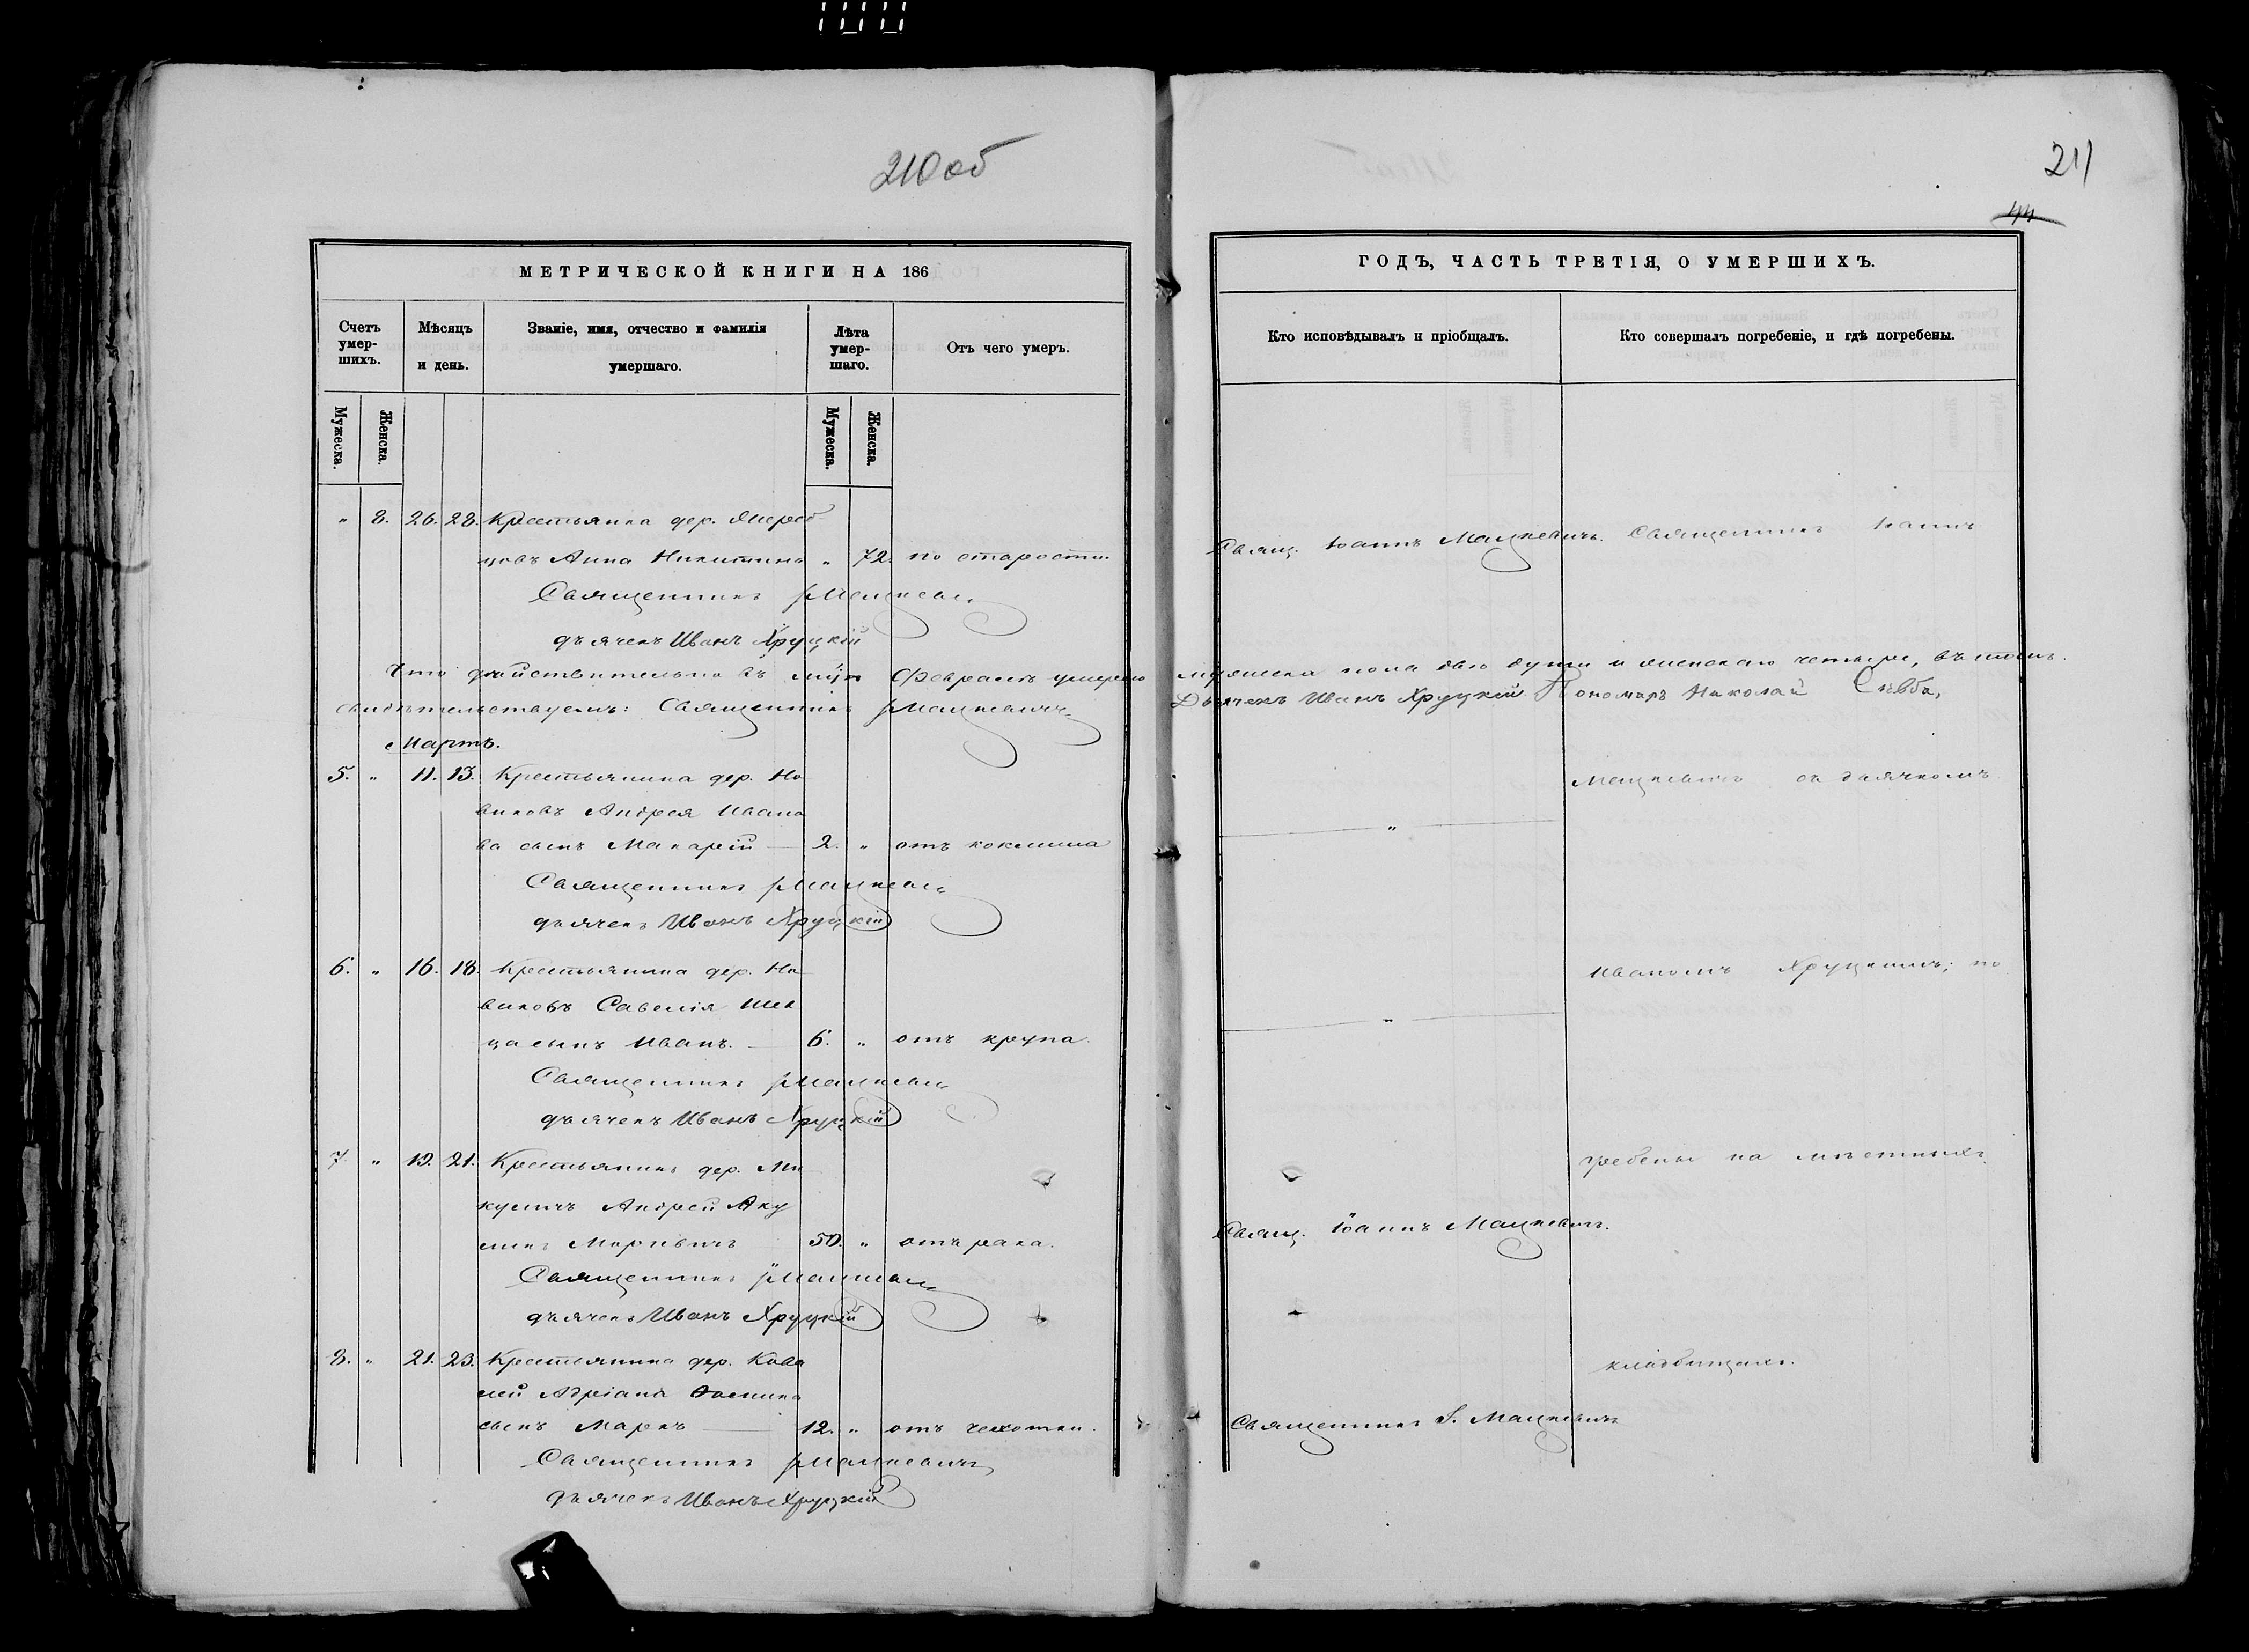 210 об
211
44
МЕТРИЧЕСКОЙ КНИГИ НА 186
ГОДЪ, ЧАСТЬ ТРЕТІЯ, О УМЕРШИХЪ.
Счетъ умер-шихъ.
Мѣсяцъ и день.
Званіе, имя, отчество и фамилія умершаго.
Лѣта умер-шаго.
Отъ чего умеръ.
Кто исповѣдывалъ и пріобщалъ.
Кто совершалъ погребеніе, и гдѣ погребены.
Мужеска.
Женска.
Мужеска.
Женска.
" 8. 26. 28. Крестьянка дер.
цовъ Анна Никитина " 72. по старости.
Свящ. Іоаннъ Мацкевичъ. Священникъ Іоаннъ
Священникъ Мацкевичъ
дьячекъ Иванъ Хруцкій
Что дѣйствительно въ м-цѣ Февралѣ умерло мужеска пола двѣ души и женскаго четыре, въ томъ
свидѣтельствуемъ: Священникъ Мацкевичъ Дьячекъ Иванъ Хруцкій Пономарь Николай
Мартъ.
5. " 11. 13. Крестьянина дер. Но
виковъ Андрея Ивано
ва сынъ Макарій — 2. " отъ коклюша
Мацкевичъ съ дьячкомъ
Священникъ Мацкевичъ
дьячекъ Иванъ Хруцкій
6. " 16. 18. Крестьянина дер. Но
виковъ Савелія
ца сынъ Иванъ. — 6. " отъ крупа.
Иваномъ Хруцкимъ; по
Священникъ Мацкевичъ
дьячекъ Иванъ Хруцкій
7. " 19. 21. Крестьянинъ дер. Ми
куличъ Андрей Аку
50. " отъ рака.
Свящ. Іоаннъ Мацкевичъ.
гребены на мѣстныхъ
Священникъ Мацкевичъ
дьячекъ Иванъ Хруцкій
8. " 21. 23. Крестьянина дер. Кова
лей Адріана
сынъ Маркъ — 12. " отъ чехотки.
Священникъ І. Мацкевичъ
кладбищахъ.
Священникъ Мацкевичъ
дьячекъ Иванъ Хруцкій